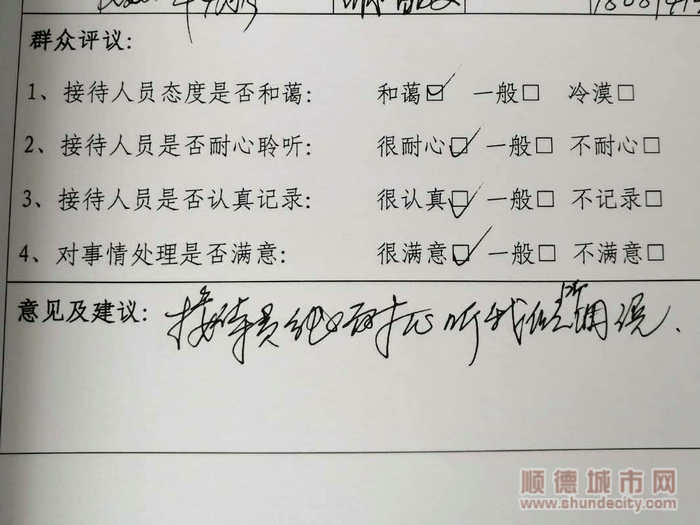 群众评议:
1、接待人员态度是否和蔼: 和蔼☑ 一般□ 冷漠□
2、接待人员是否耐心聆听: 很耐心☑ 一般□ 不耐心□
3、接待人员是否认真记录: 很认真☑ 一般□ 不记录□
4、对事情处理是否满意: 很满意☑ 一般□ 不满意□
意见及建议: 接待员能够耐心听我
顺德城市网
www.shundecity.com